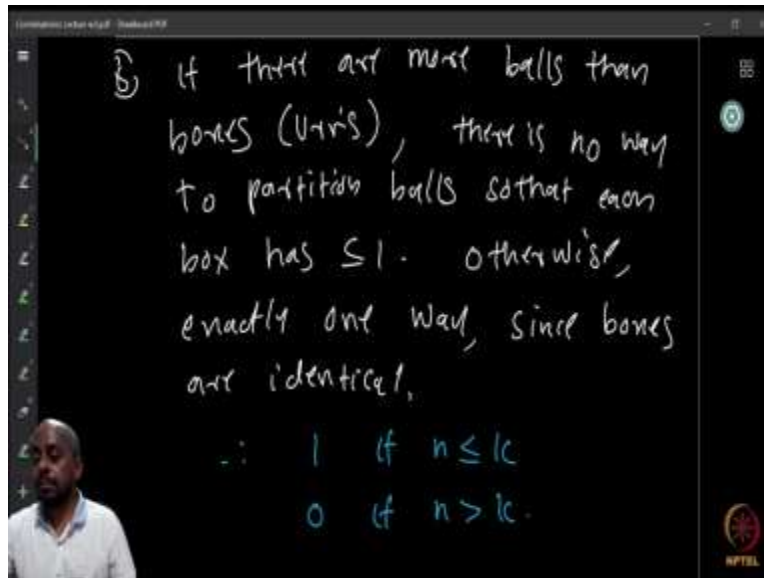 ⑧ If there are more balls than
boxes (Urn's), there is no way
to partition balls so that each
box has ≤ 1. Otherwise,
exactly one way, since boxes
are identical.
∴ 1 if n ≤ k
0 if n > k.
NPTEL